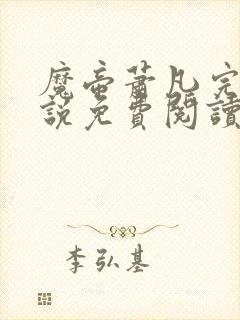 魔帝蕭凡完
說免費閱讀
李弘基